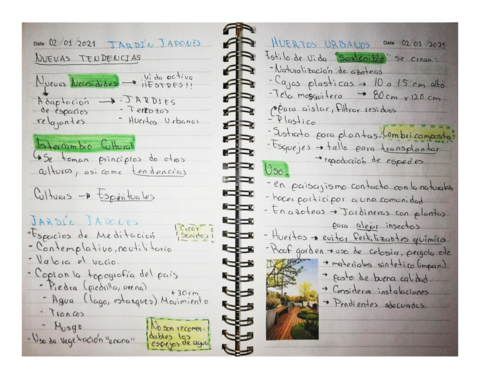 Date 02/01 2021 JARDÍN JAPONES
NUEVAS TENDENCIAS
Nuevas Necesidades → Vida activo
¡¡ESTRES!!
Adaptación → - JARDIES
de espacios - Terrazas
relajantes - Huertos Urbanos
Intercambio Cultural
Se toman principios de otras
culturas, así como tendencias
Culturas → Espirituales
JARDÍN JAPONES
- Espacios de Meditación
Crear
Sonidos
- Contemplativo, no utilitario
- Valora el vacío
- Copian la topografía del país
- Piedra (piedrilla, arena)
+30cm
- Agua (lago, estanques) Movimiento
- Troncos
- Musgo
- Uso de Vegetación "enana"
No son recomen-
dables los
espejos de agua
HUERTOS URBANOS Date 02/01 2021
Estilo de Vida "Sostenible" se crean:
- Naturalización de azoteas
- Cajas plasticas → 10 o 15 cm alto
- Tela mosquitera → 80cm x 120cm
para aislar, filtrar residuos
- Plastico
- Sustrato para plantas (lombricomposta)
- Esquejes → tallo para transplantar
→ reproducción de especies
Uso:
- en paisajismo contacto con la naturaleza
- hacer participar a una comunidad
- En azoteas → Jardineras con plantas
para alejar insectos
- Huertos → evitar fertilizantes quimica
- Roof garden → uso de celosia, pergola, etc
→ materiales sintetico (imperm)
→ pasto de buena calidad
→ Considerar instalaciones
→ Pendientes adecuadas